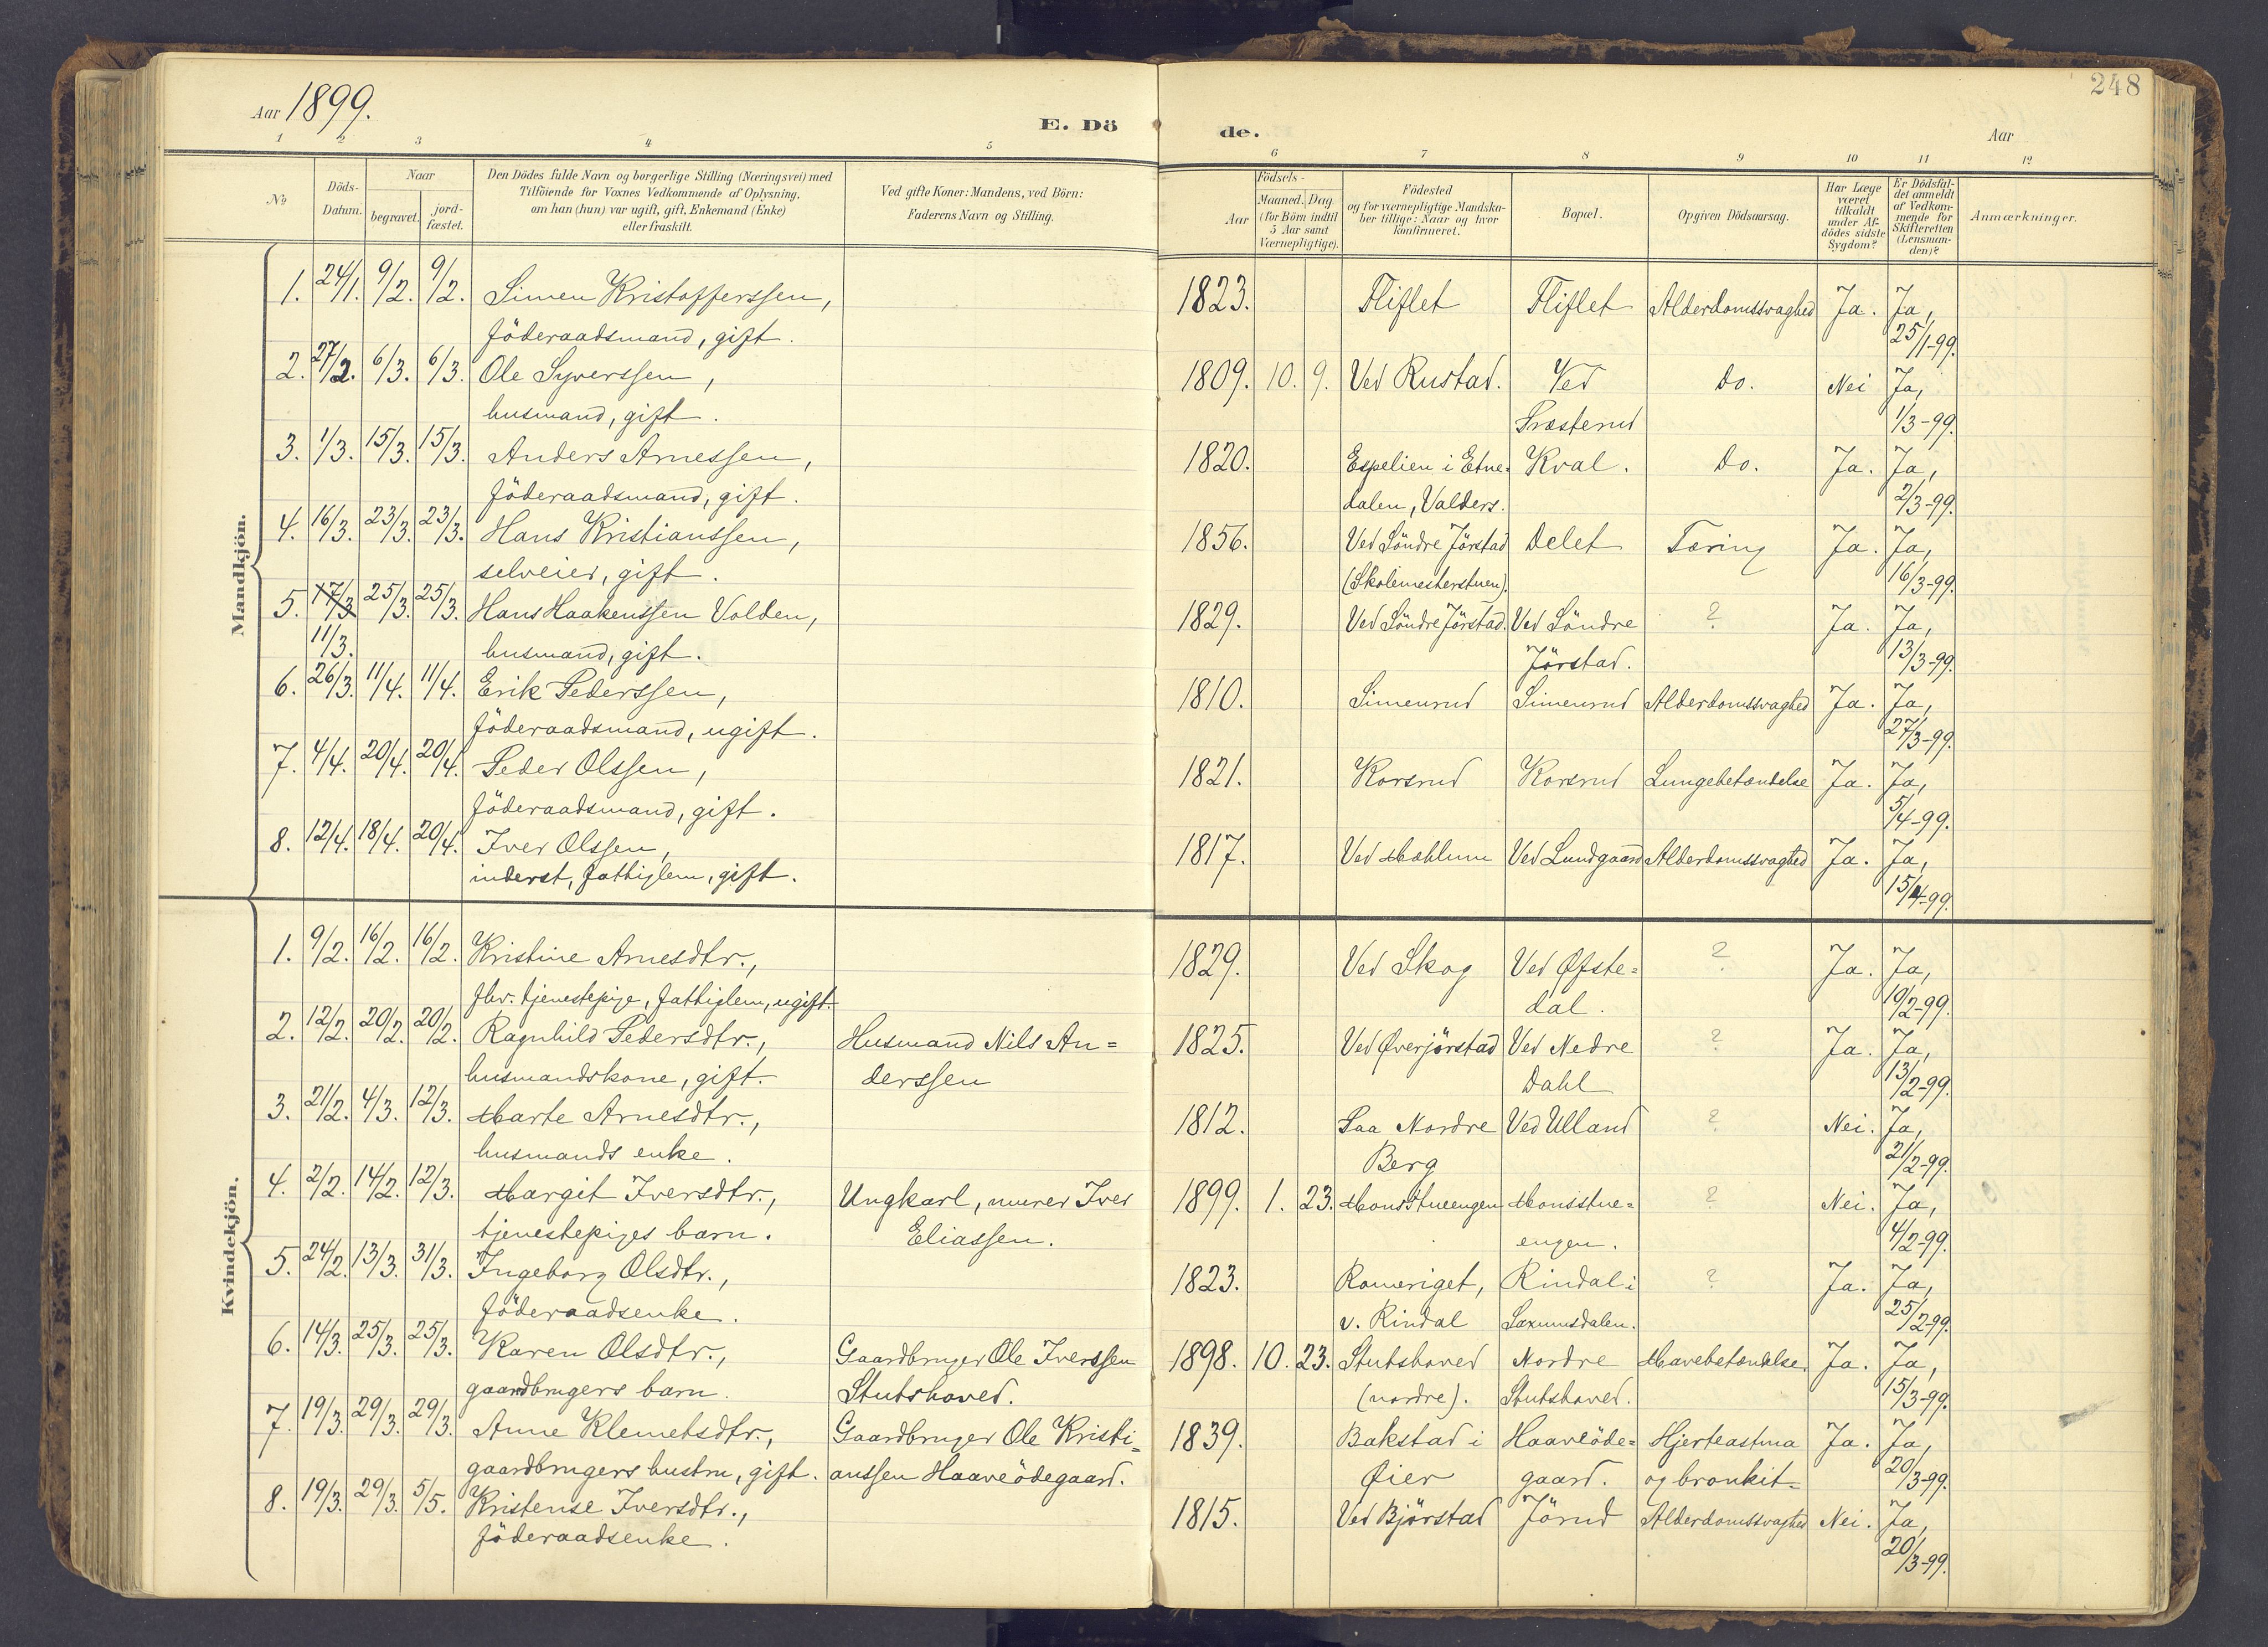 248
Aar 1899.
E. Dö de.
Aar
1 2 3 4 5 6 7 8 9 10 11 12
№
Döds-
Datum.
Naar
begravet.
jord-
fæstet.
Den Dödes fulde Navn og borgerlige Stilling (Næringsvei) med
Tilföiende for Voxnes Vedkommende af Oplysning,
om han (hun) var ugift, gift, Enkemand (Enke)
eller fraskilt.
Ved gifte Koner: Mandens, ved Börn:
Faderens Navn og Stilling.
Födsels-
Aar
Maaned. Dag.
(for Börn indtil
5 Aar samt
Værnepligtige).
Födested
og for værnepligtige Mandska-
ber tillige: Naar og hvor
konfirmeret.
Bopæl.
Opgiven Dödsaarsag.
Har Læge
været
tilkaldt
under Af-
dödes sidste
Sygdom?
Er Dödsfal-
det anmeldt
af Vedkom-
mende for
Skifteretten
(Lensman-
den)?
Anmærkninger.
Mandkjön.
1. 24/1. 9/2. 9/2. Simen Kristofferssen, 1823. Fliflet Fliflet Alderdomssvaghed Ja. Ja,
föderaadsmand, gift. 25/1-99.
2. 27/2. 6/3. 6/3. Ole Syverssen, 1809. 10. 9. Ved Rustad. Ved Do. Nei Ja,
husmand, gift. Præsterud 1/3-99.
3. 1/3. 15/3. 15/3. Anders Arnessen, 1820. Espelien i Etne- Kval. Do. Ja. Ja,
föderaadsmand, gift. dalen, Valders. 2/3-99.
4. 16/3. 23/3. 23/3. Hans Kristianssen, 1856. Ved Söndre Jörstad Delet Tæring Ja. Ja,
selveier, gift. (Skolemesterstuen). 16/3-99.
5. 17/3 25/3. 25/3. Hans Haakenssen Volden, 1829. Ved Söndre Jörstad. Ved Söndre ? Ja. Ja,
11/3. husmand, gift. Jörstad. 13/3-99.
6. 26/3. 11/4. 11/4. Erik Pederssen, 1810. Simenrud Simenrud Alderdomssvaghed Ja. Ja,
föderaadsmand, ugift. 27/3-99.
7. 4/4. 20/4. 20/4. Peder Olssen, 1821. Korsrud Korsrud Lungebetændelse Ja. Ja,
föderaadsmand, gift. 5/4-99.
8. 12/4. 18/4. 20/4. Iver Olssen, 1817. Ved Mæhlum Ved Lundgaard Alderdomssvaghed Ja. Ja,
inderst, fattiglem, gift. 15/4-99.
Kvindekjön.
1. 9/2. 16/2. 16/2. Kristine Arnesdtr., 1829. Ved Skog Ved Øfste= ? Ja. Ja,
fhv. tjenestepige, fattiglem, ugift. dal. 10/2-99.
2. 12/2. 20/2. 20/2. Ragnhild Pedersdtr., Husmand Nils An= 1825. Ved Øverjörstad Ved Nedre ? Ja. Ja,
husmandskone, gift. derssen Dahl 13/2-99.
3. 21/2. 4/3. 12/3. Marte Arnesdtr., 1812. Paa Nordre Ved Ulland ? Nei. Ja,
husmands enke. Berg 21/2-99.
4. 2/2. 14/2. 12/3. Margit Iversdtr., Ungkarl, murer Iver 1899. 1. 23. Monsstueengen Monsstue= ? Nei. Ja,
tjenestepiges barn. Eliassen. engen. 4/2-99.
5. 24/2. 13/3. 31/3. Ingeborg Olsdtr., 1823. Romeriget, Rindal i ? Ja. Ja,
föderaadsenke. v. Rindal Saxumsdalen. 25/2-99.
6. 14/3. 25/3. 25/3. Karen Olsdtr., Gaardbruger Ole Iverssen 1898. 10. 23. Stutshoved Nordre Mavebetændelse. Ja. Ja,
gaardbrugers barn. Stutshoved. (nordre). Stutshoved. 15/3-99.
7. 19/3. 29/3. 29/3. Anne Klemetsdtr., Gaardbruger Ole Kristi= 1839. Bakstad i Haaveöde= Hjerteastma Ja. Ja,
gaardbrugers hustru, gift. anssen Haaveödegaard. Øier gaard. og bronkit= 20/3-99.
8. 19/3. 29/3. 5/5. Kristense Iversdtr., 1815. Ved Björstad Jörud Alderdomssvaghed Nei. Ja,
föderaadsenke. 20/3-99.